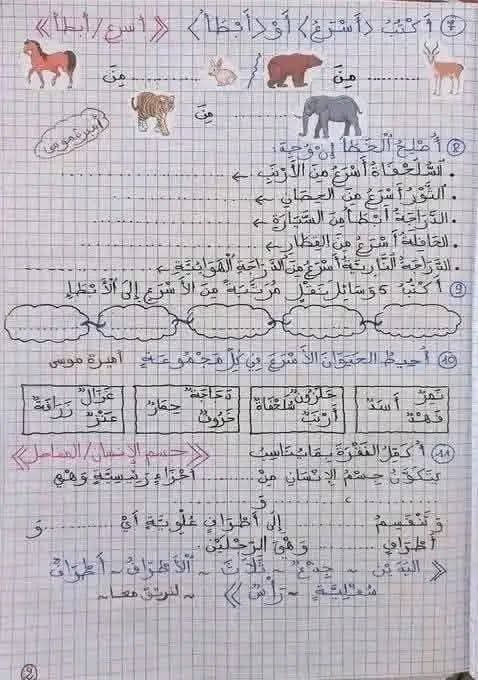 7 أَكْتُبُ 〈أَسْرَعُ〉 أَوْ 〈أَبْطَأُ〉 《أسرع / أبطأ》
......... مِنَ / ......... مِنَ
......... مِنَ
أميرة موسى
8 أُصْلِحُ الْخَطَأَ إِنْ وُجِدَ:
. السُّلَحْفَاةُ أَسْرَعُ مِنَ الْأَرْنَبِ ←
. الثَّوْرُ أَسْرَعُ مِنَ الْحِصَانِ ←
. الدَّرَّاجَةُ أَبْطَأُ مِنَ السَّيَّارَةِ ←
. الحَافِلَةُ أَسْرَعُ مِنَ القِطَارِ ←
. الدَّرَّاجَةُ النَّارِيَّةُ أَسْرَعُ مِنَ الدَّرَّاجَةِ الْهَوَائِيَّةِ ←
9 أَكْتُبُ 5 وَسَائِلِ نَقْلٍ مُرَتَّبَةً مِنَ الأَسْرَعِ إِلَى الْأَبْطَإِ
10 أُحِيطُ الحَيَوَانَ الأَسْرَعَ فِي كُلِّ مَجْمُوعَةٍ أميرة موسى
نَمِرٌ أَسَدٌ فَهْدٌ
حَلَزُونٌ سُلَحْفَاةٌ أَرْنَبٌ
دَجَاجَةٌ حِمَارٌ خَرُوفٌ
غَزَالٌ زَرَافَةٌ عَنْزٌ
11 أُكْمِلُ الفَقْرَةَ بِمَا يُنَاسِبُ 《جسم الإنسان / المفاصل》
يَتَكَوَّنُ جِسْمُ الإِنْسَانِ مِنْ ......... أَجْزَاءٍ رَئِيسِيَّةٍ وَهْيَ
......... ، ......... وَ .........
وَ تَنْقَسِمُ ......... إِلَى أَطْرَافٍ عُلْوِيَّةٍ أَيْ ......... وَ
أَطْرَافٍ ......... وَهْيَ الرِّجْلَيْنِ
《 اليَدَيْنِ ~ جِذْعٌ ~ ثَلَاثَ ~ الْأَطْرَافُ ~ أَطْرَافٌ
سُفْلِيَّةٍ ~ رَأْسٌ 》 ~ لنرتق معا ~